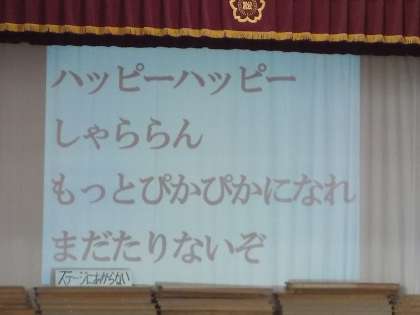 ハッピーハッピー
しゃららん
もっとぴかぴかになれ
まだたりないぞ
ステージにあがらない